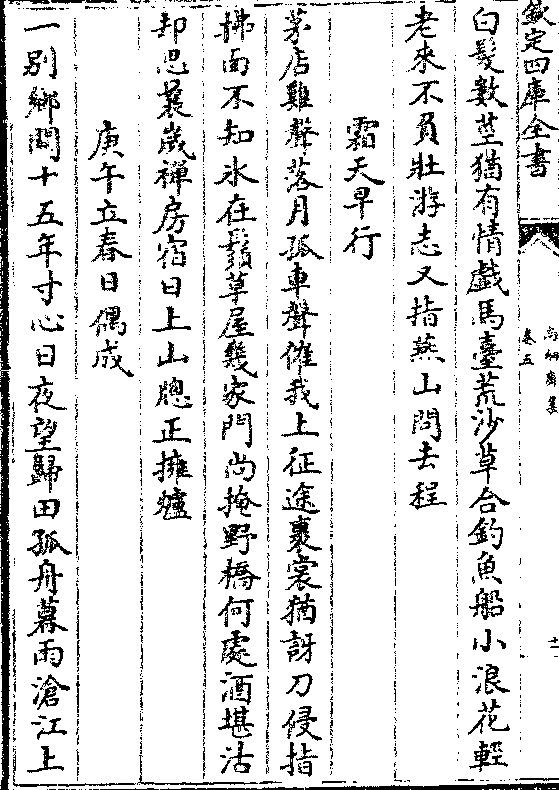 欽定四庫全書
卷五
白髮數莖猶有情戲馬臺荒沙草合釣魚船小浪花輕
老來不負壯游志又指燕山問去程
霜天早行
茅店雞聲落月孤車聲催我上征途裹裳猶訝刀侵指
拂面不知氷在鬚草屋幾家門尚掩野橋何處酒堪沽
却思曩歲禪房宿日上山牕正擁爐
庚午立春日偶成
一別鄉關十五年寸心日夜望歸田孤舟暮雨滄江上